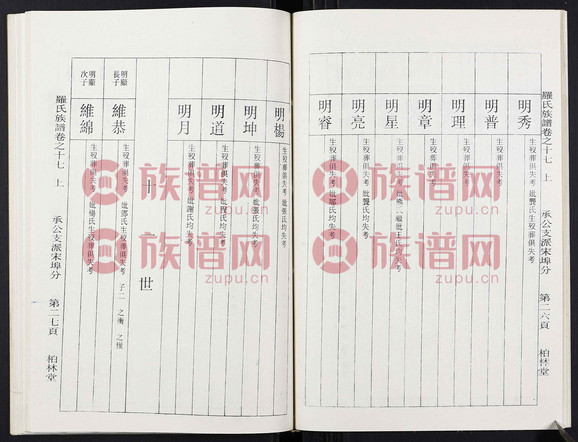 羅氏族譜卷之十七 上 承公支派宋埠分 第二六頁 柏林堂
明秀 生歿葬俱失考 妣龔氏生歿葬俱失考
明普 生歿葬俱失考
明理 生歿葬俱失考
明章 生歿葬俱失考
明星 生歿葬俱失考
明亮 生歿葬俱失考 妣龔氏均失考
明睿 生歿葬俱失考
明楊 生歿葬俱失考 妣張氏均失考
明坤 生歿葬俱失考 妣張氏均失考
明道 生歿葬俱失考
明月 生歿葬俱失考 妣謝氏均失考
世
明顯長子 維恭 生歿葬俱失考 妣鄧氏生歿葬俱失考 子二 之衡
明顯次子 維綿 生歿葬俱失考 妣楊氏生歿葬俱失考
羅氏族譜卷之十七 上 承公支派宋埠分 第二七頁 柏林堂
族谱网
zupu.cn
族谱网
zupu.cn
族谱网
zupu.cn
族谱网
zupu.cn